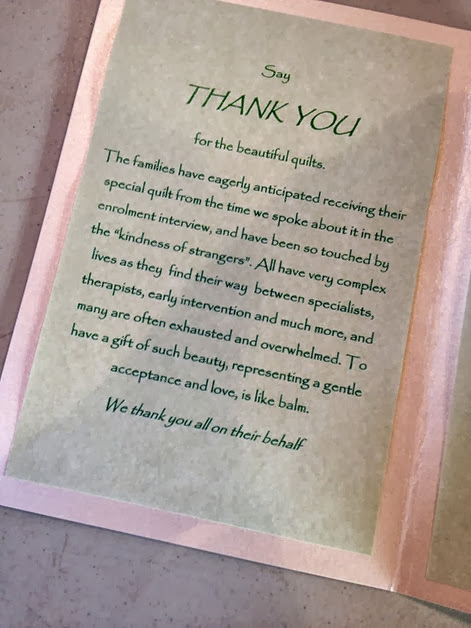 Say
THANK YOU
for the beautiful quilts.
The families have eagerly anticipated receiving their
special quilt from the time we spoke about it in the
enrolment interview, and have been so touched by
the "kindness of strangers". All have very complex
lives as they find their way between specialists,
therapists, early intervention and much more, and
many are often exhausted and overwhelmed. To
have a gift of such beauty, representing a gentle
acceptance and love, is like balm.
We thank you all on their behalf